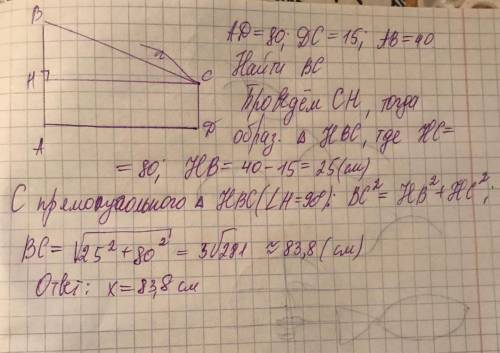 B
H
A
x
C
D
AD=80; DC=15; AB=40
Найти BC
Проведём CH, тогда
образ. △ HBC, где HC=
=80; HB=40-15=25(см)
С прямоугольного △ HBC(∠H=90°): BC²=HB²+HC²;
BC=√25²+80² = 3√281 ≈83,8(см)
Ответ: x=83,8 см